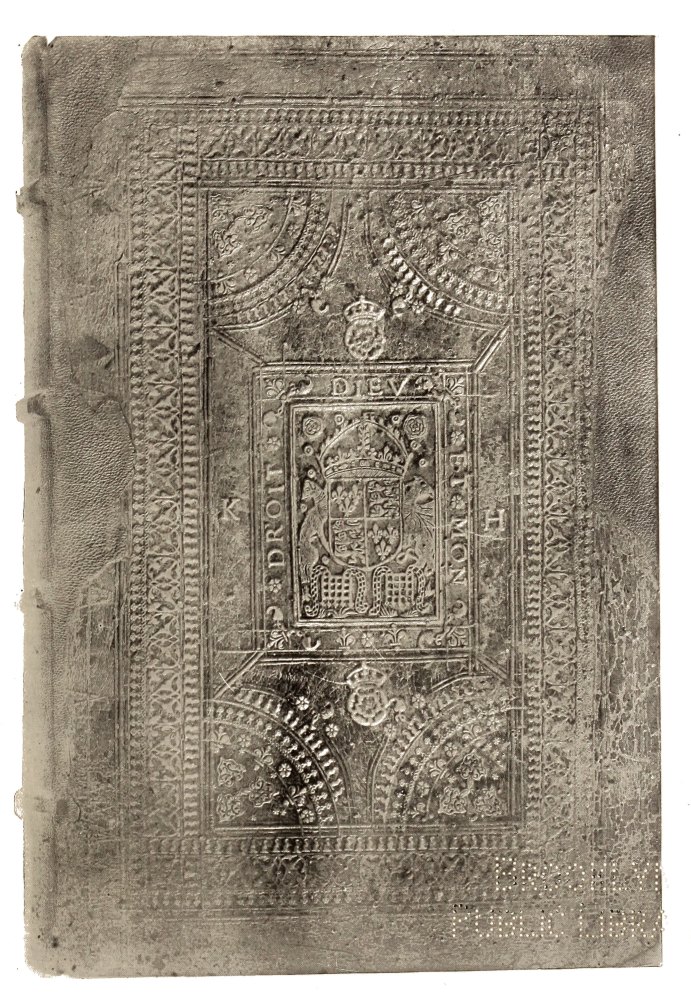 DIEV
DROIT
ET MON
K
H
BROOKLYN
PUBLIC LIBR